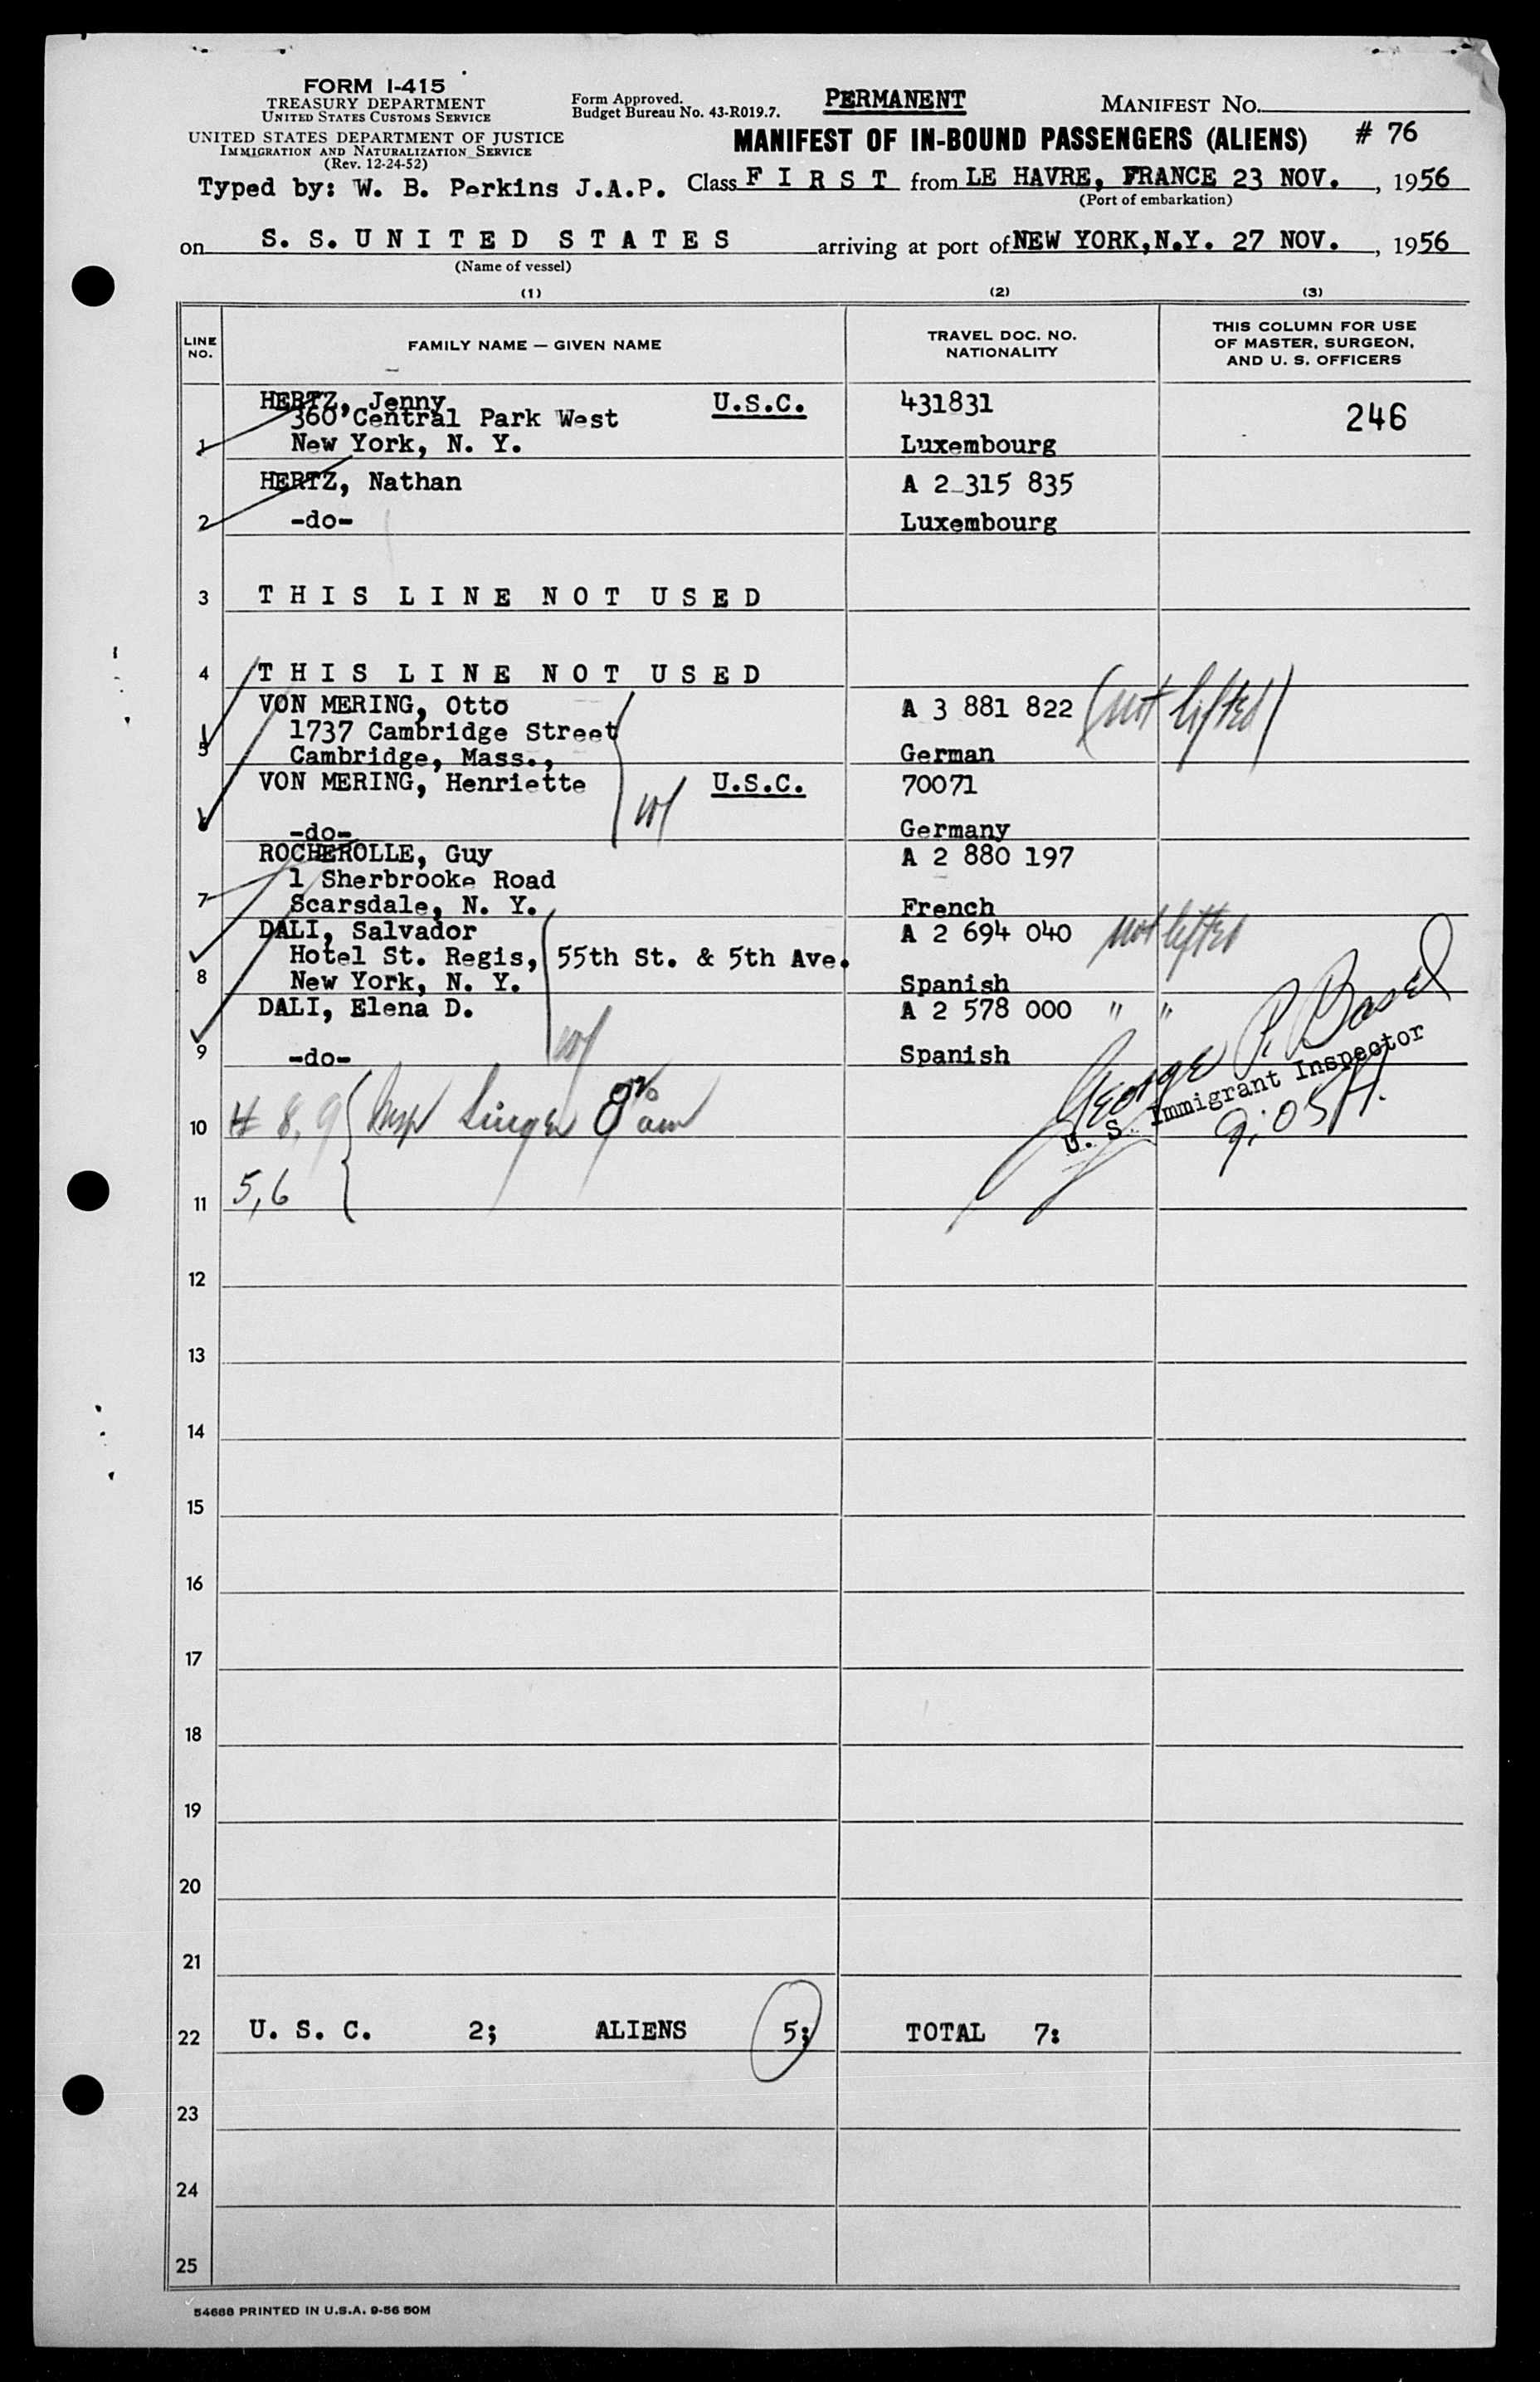 FORM I-415
TREASURY DEPARTMENT
UNITED STATES CUSTOMS SERVICE
UNITED STATES DEPARTMENT OF JUSTICE
IMMIGRATION AND NATURALIZATION SERVICE
(Rev. 12-24-52)
Form Approved.
Budget Bureau No. 43-R019.7.
PERMANENT
MANIFEST NO.
MANIFEST OF IN-BOUND PASSENGERS (ALIENS) # 76
Typed by: W. B. Perkins J.A.P. Class F I R S T from LE HAVRE, FRANCE 23 NOV. , 1956
(Port of embarkation)
on S. S. U N I T E D S T A T E S arriving at port of NEW YORK, N.Y. 27 NOV. , 1956
(Name of vessel)
(1) (2) (3)
LINE NO.
FAMILY NAME — GIVEN NAME
TRAVEL DOC. NO.
NATIONALITY
THIS COLUMN FOR USE
OF MASTER, SURGEON,
AND U. S. OFFICERS
HERTZ, Jenny U.S.C. 431831 246
360 Central Park West
1 New York, N. Y. Luxembourg
HERTZ, Nathan A 2 315 835
2 -do- Luxembourg
3 T H I S L I N E N O T U S E D
4 T H I S L I N E N O T U S E D
VON MERING, Otto A 3 881 822 (not lifted)
1737 Cambridge Street
5 Cambridge, Mass., German
VON MERING, Henriette U.S.C. 70071
-do- Germany
ROCHEROLLE, Guy A 2 880 197
1 Sherbrooke Road
7 Scarsdale, N. Y. French
DALI, Salvador A 2 694 040 not lifted
Hotel St. Regis, 55th St. & 5th Ave.
8 New York, N. Y. Spanish
DALI, Elena D. A 2 578 000 " "
9 -do- Spanish
George P. Basel
U. S. Immigrant Inspector
9:05 A.
10 # 8, 9 Insp Singer am
11 5,6
12
13
14
15
16
17
18
19
20
21
22 U. S. C. 2; ALIENS 5; TOTAL 7:
23
24
25
54688 PRINTED IN U.S.A. 9-56 50M